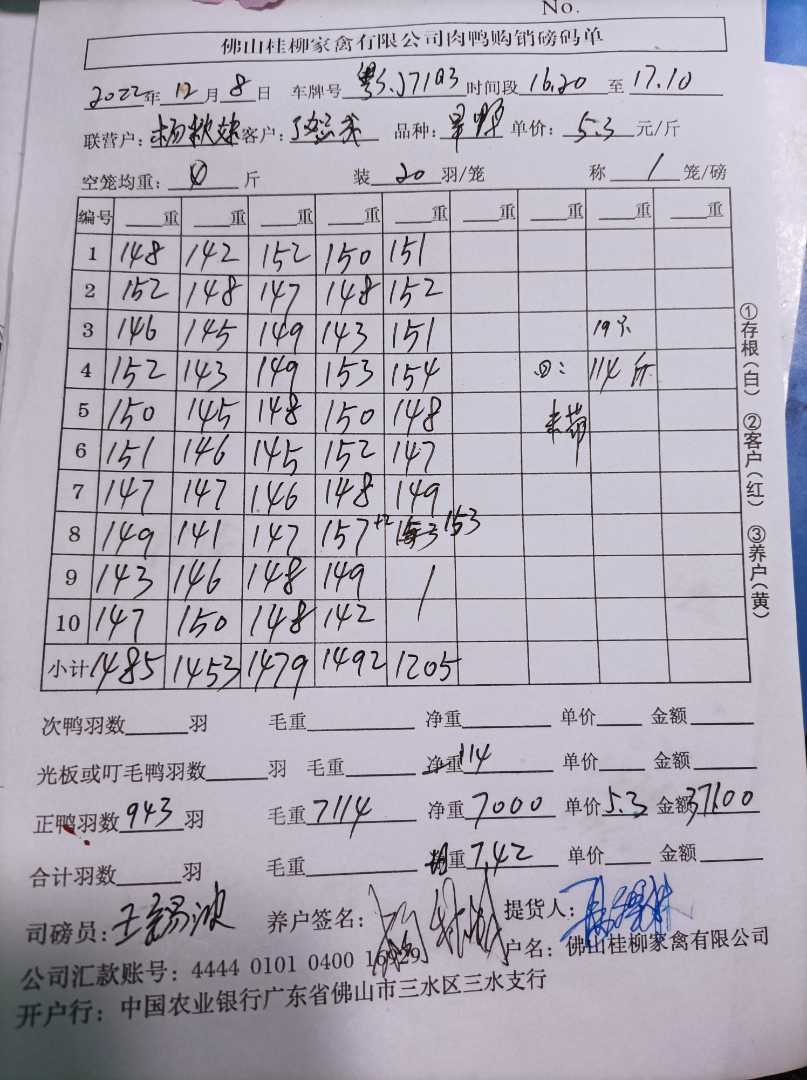 No.
佛山桂柳家禽有限公司肉鸭购销磅码单
2022年12月8日 车牌号 时间段16.20至17.10
联营户: 杨 客户: 品种: 单价: 5.3元/斤
空笼均重: 0 斤 装 20 羽/笼 称 1 笼/磅
编号 重 重 重 重 重 重 重 重 重
1 148 142 152 150 151
2 152 148 147 148 152
3 146 145 149 143 151 19只
4 152 143 149 153 154 回: 114斤
5 150 145 148 150 148
6 151 146 145 152 147
7 147 147 146 148 149
8 149 141 147 157+2 153
9 143 146 148 149 /
10 147 150 148 142
小计 1485 1453 1479 1492 1205
①存根(白) ②客户(红) ③养户(黄)
次鸭羽数 羽 毛重 净重 单价 金额
光板或叮毛鸭羽数 羽 毛重 净重 114 单价 金额
正鸭羽数943羽 毛重7114 净重7000 单价5.3 金额37100
合计羽数 羽 毛重 重7.42 单价 金额
司磅员: 王锡波 养户签名: 提货人:
公司汇款账号: 4444 0101 0400 16929 户名: 佛山桂柳家禽有限公司
开户行: 中国农业银行广东省佛山市三水区三水支行